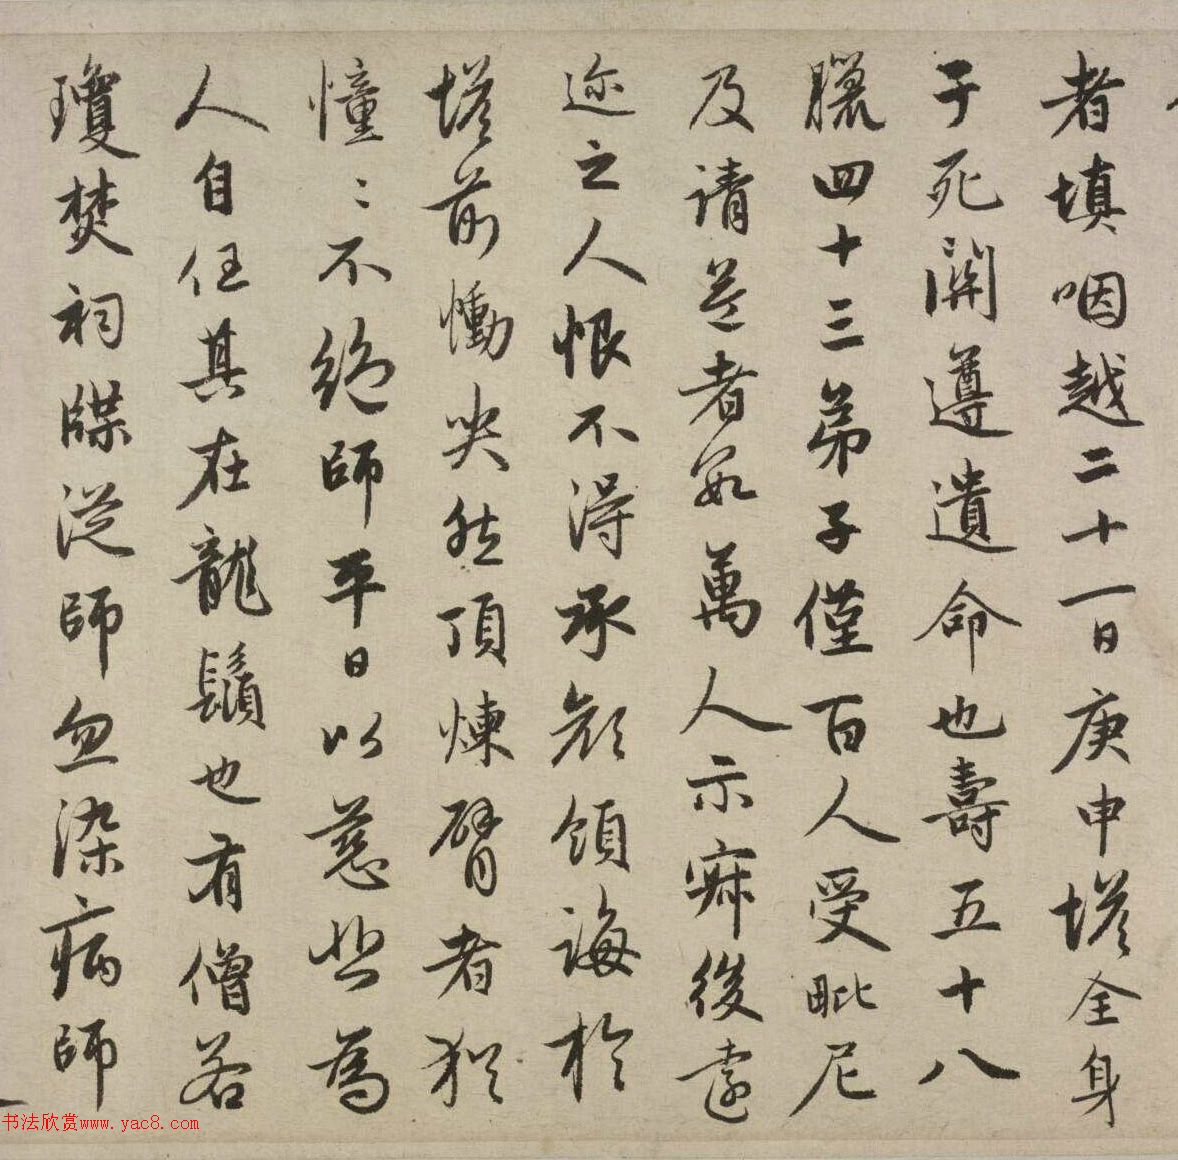 者填咽越二十一日庚申塔全身
于死關遵遺命也壽五十八
臘四十三弟子僅百人受毗尼
及請益者數萬人示寂後遠
迩之人恨不得承顔領誨於
塔前慟哭然頂煉臂者猶
憧〻不絶師平日以慈悲為
人自任其在龍鬚也有僧若
瓊焚祠牒從師忽染病師
书法欣赏www.yac8.com